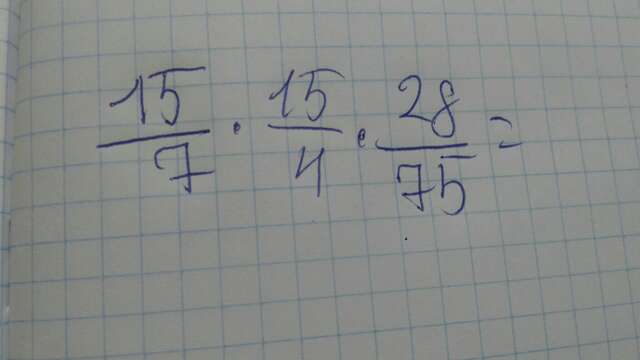 15/7 · 15/4 · 28/75 =